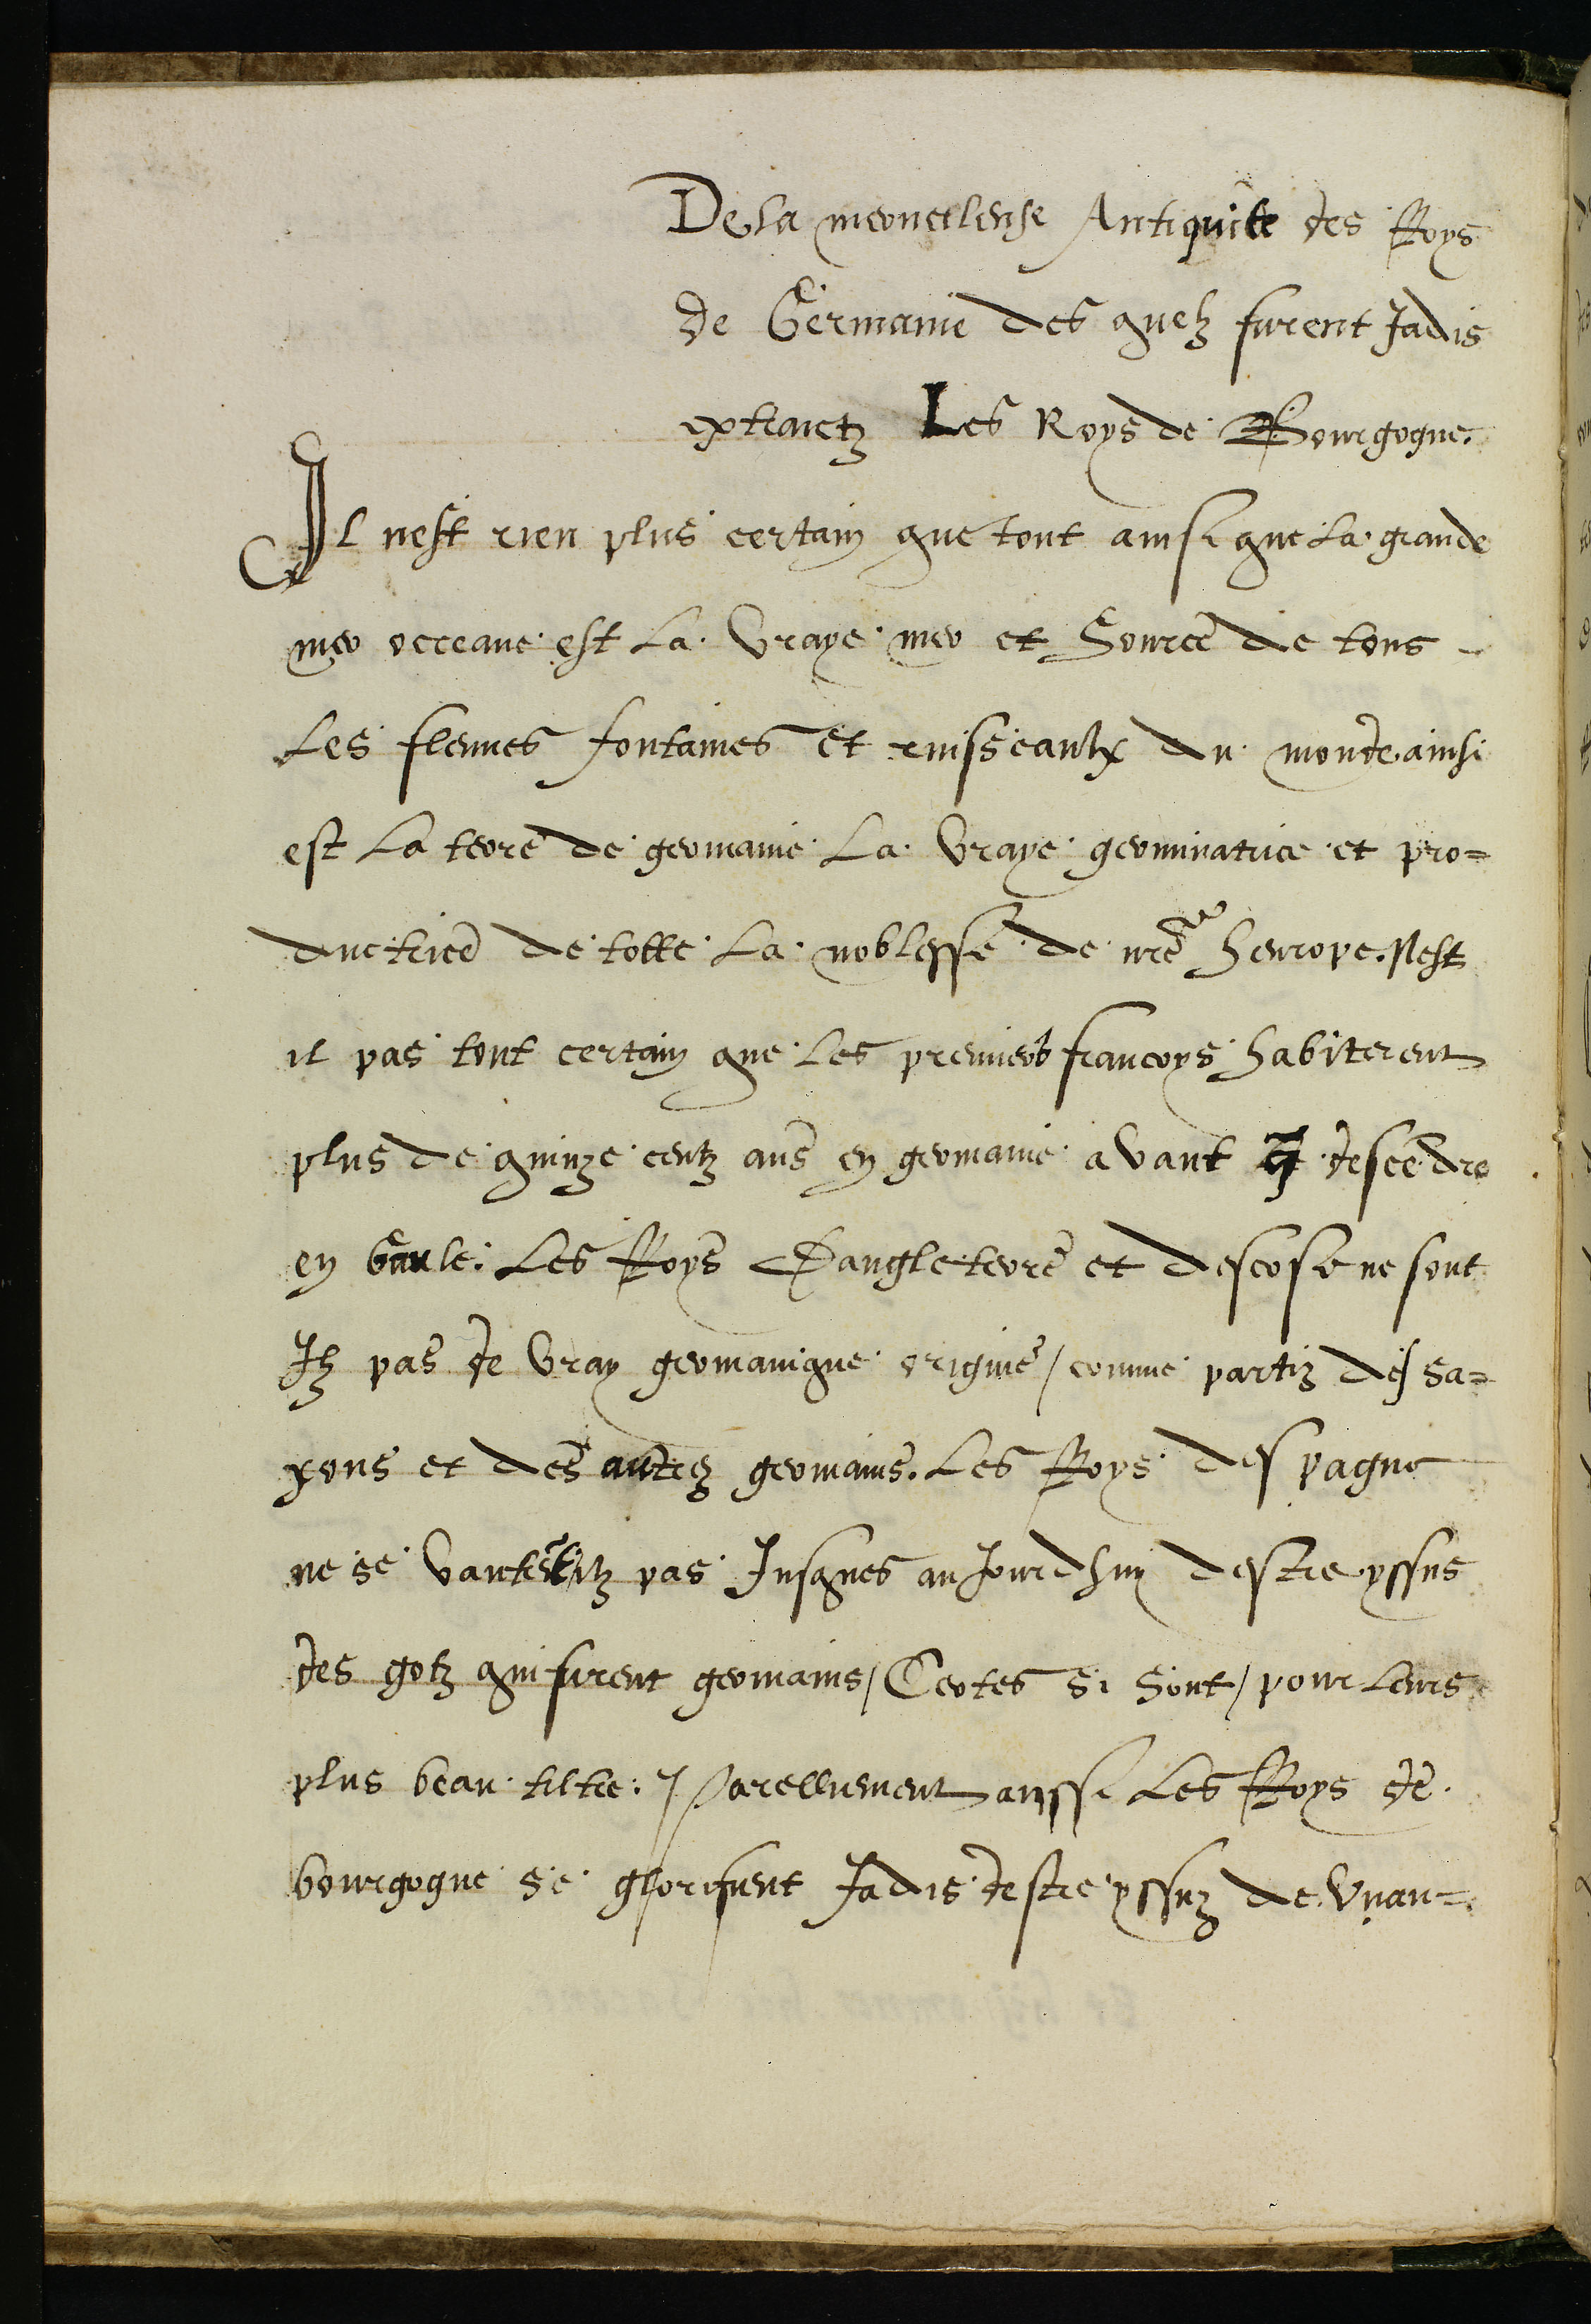 De la merveileuse Antiquite des Roys
de Germanie des quelz furent Jadis
extraictz Les Roys de Bourgogne.
Il nest rien plus certain que tout ainsi que La grande
mer occeane est La vraye mer et Source de tous
Les fleuves fontaines et ruisseaulx du monde ainsi
est La terre de germanie La vraye germinatrice et pro=
ductrice de totte La noblesse de nre heurope. Nest
il pas tout certain que Les premiers francoys habiterent
plus de quinze centz ans en germanie avant q̃ descẽdre
en Gaule. Les Roys Dangleterre et descosse ne sont
Ilz pas de vray germanique origine / comme partiz des Sa=
xons et des autrez germains. Les Roys despagne
ne se vantẽt ilz pas Jusques auJourdhuy destre yssus
des gotz qui furent germains / Certes Si Sont / pour Leurs
plus beau tiltre. / Parellement aussi Les Roys de
bourgogne se glorifient Jadis destre yssuz de Vuan=